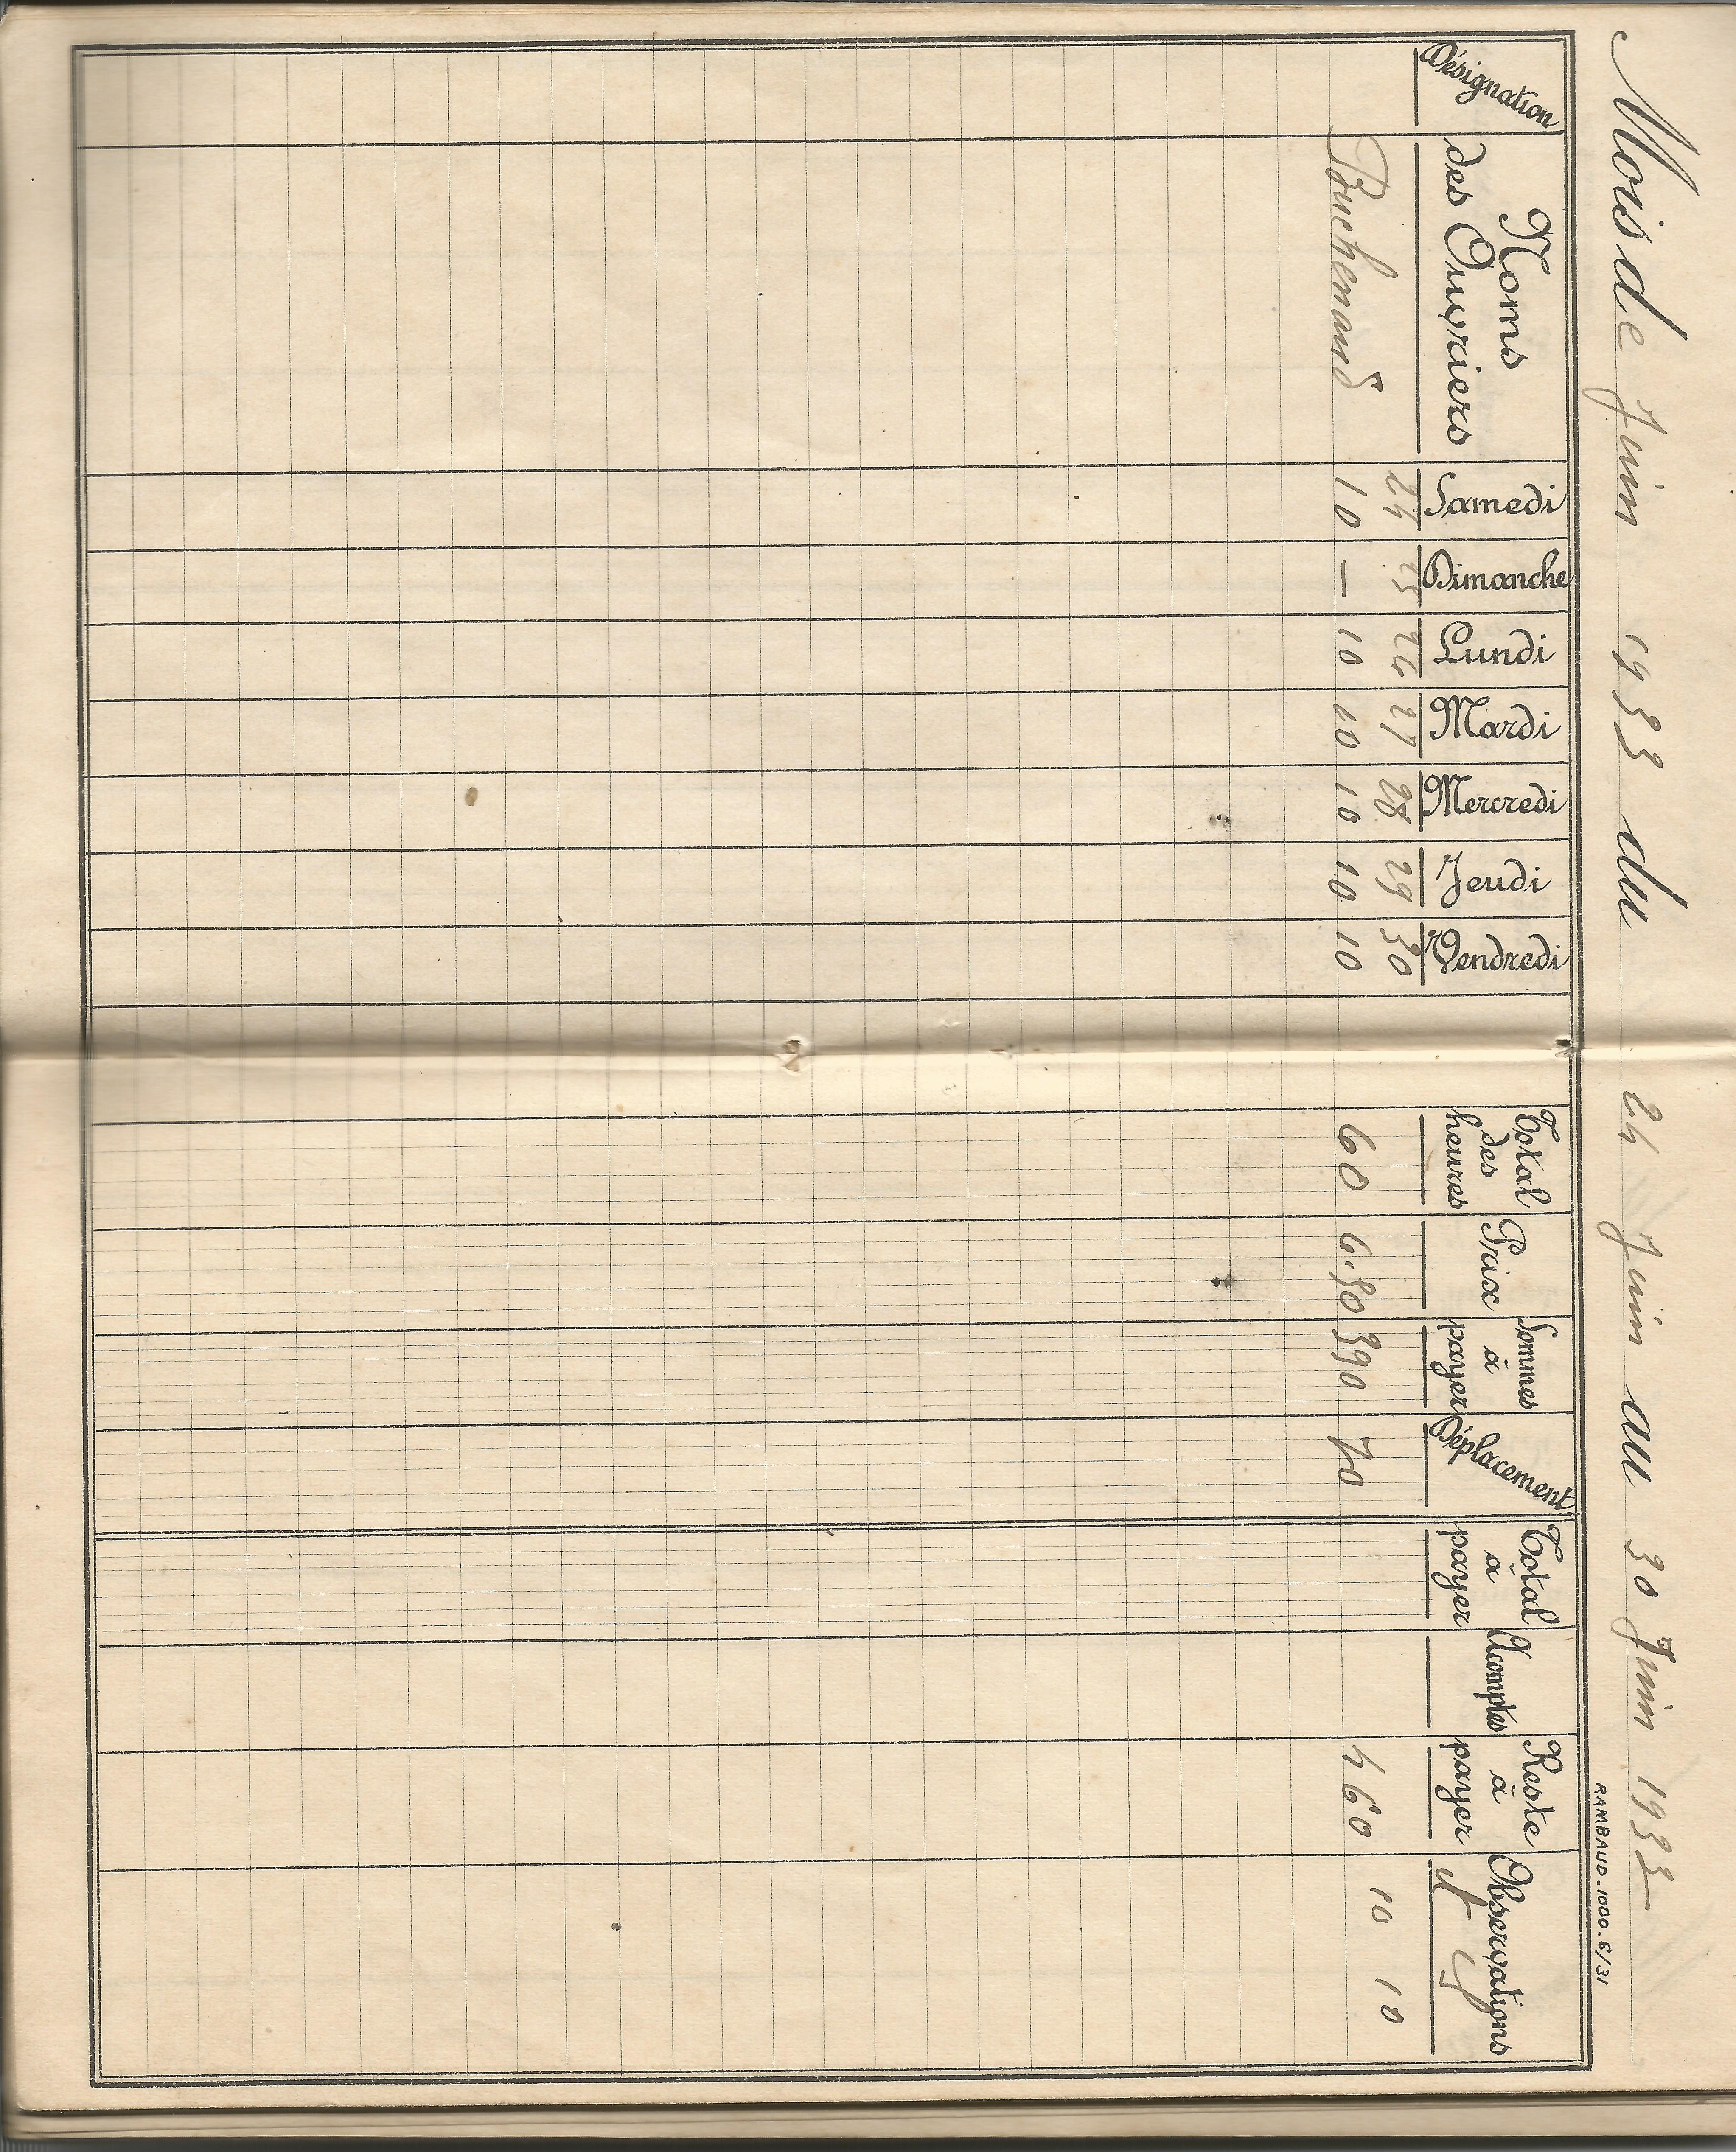 Mois de Juin 1933 du 24 Juin au 30 Juin 1933
RAMBAUD. 1000. 6/31
Désignation Noms des Ouvriers Samedi Dimanche Lundi Mardi Mercredi Jeudi Vendredi Total des heures Prix Sommes à payer Déplacement Total à payer Acomptes Reste à payer Observations
24 25 26 27 28 29 30
Buchemard 10 — 10 10 10 10 10 60 6.50 390 70 460 10 10